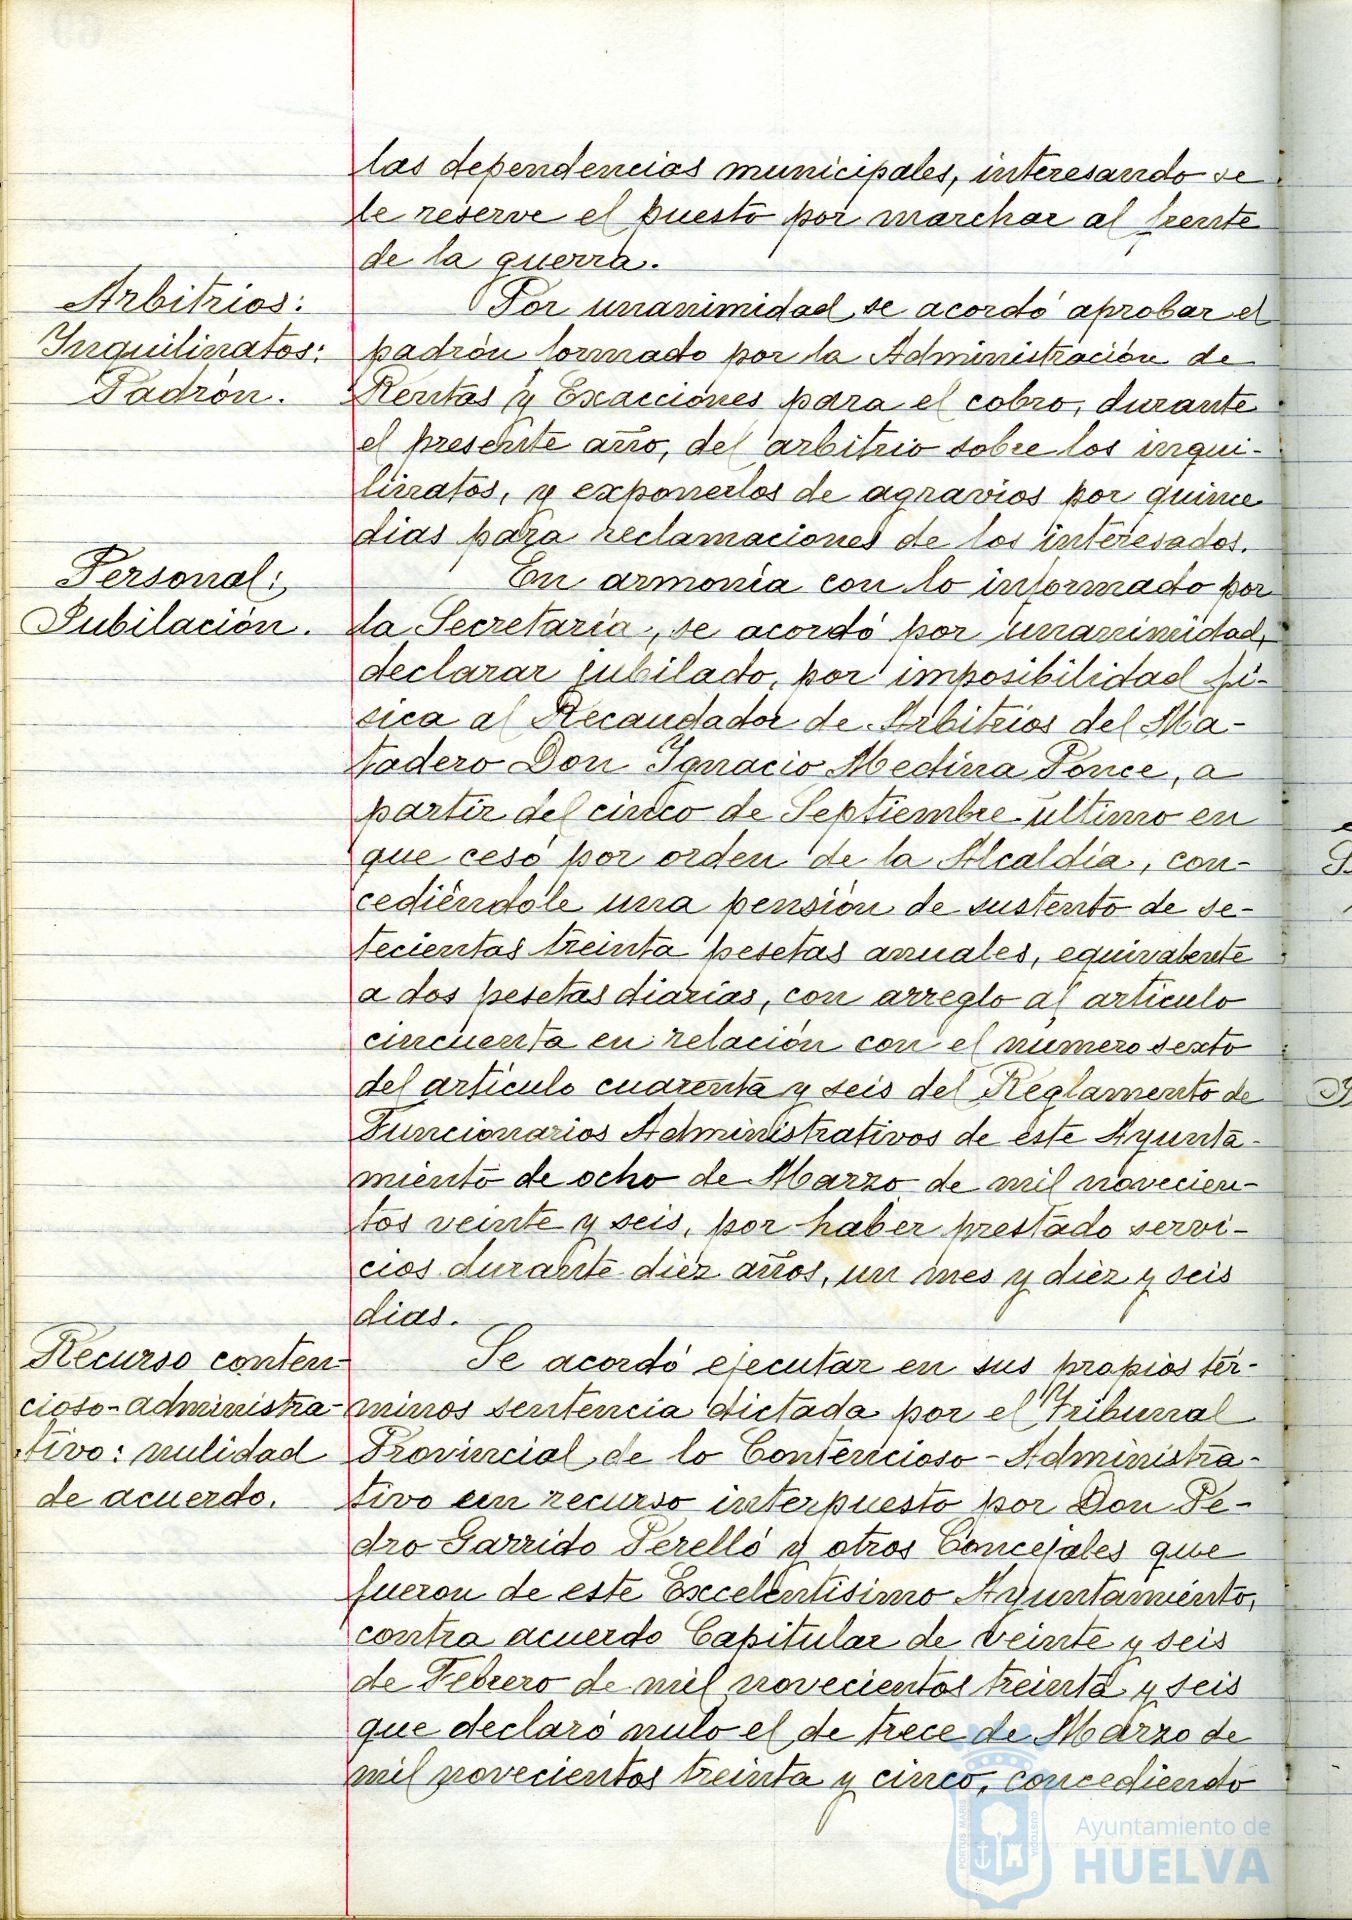 las dependencias municipales, interesando se
le reserve el puesto por marchar al frente
de la guerra.
Arbitrios:
Inquilinatos:
Padrón.
Por unanimidad se acordó aprobar el
padrón formado por la Administración de
Rentas y Exacciones para el cobro, durante
el presente año, del arbitrio sobre los inqui-
linatos, y exponerlos de agravios por quince
dias para reclamaciones de los interesados.
Personal:
Jubilación.
En armonía con lo informado por
la Secretaría, se acordó por unanimidad,
declarar jubilado, por imposibilidad fí-
sica al Recaudador de Arbitrios del Ma-
tadero Don Ignacio Medina Ponce, a
partir del cinco de Septiembre último en
que cesó por orden de la Alcaldía, con-
cediéndole una pensión de sustento de se-
tecientas treinta pesetas anuales, equivalente
a dos pesetas diarias, con arreglo al artículo
cincuenta en relación con el número sexto
del artículo cuarenta y seis del Reglamento de
Funcionarios Administrativos de este Ayunta-
miento de ocho de Marzo de mil novecien-
tos veinte y seis, por haber prestado servi-
cios durante diez años, un mes y diez y seis
dias.
Recurso conten-
cioso-administra-
tivo: nulidad
de acuerdo.
Se acordó ejecutar en sus propios tér-
minos sentencia dictada por el Tribunal
Provincial de lo Contencioso-Administra-
tivo en recurso interpuesto por Don Pe-
dro Garrido Perelló y otros Concejales que
fueron de este Excelentísimo Ayuntamiento,
contra acuerdo Capitular de veinte y seis
de Febrero de mil novecientos treinta y seis
que declaró nulo el de trece de Marzo de
mil novecientos treinta y cinco, concediendo
PORTUS MARIS
CUSTODIA
Ayuntamiento de
HUELVA